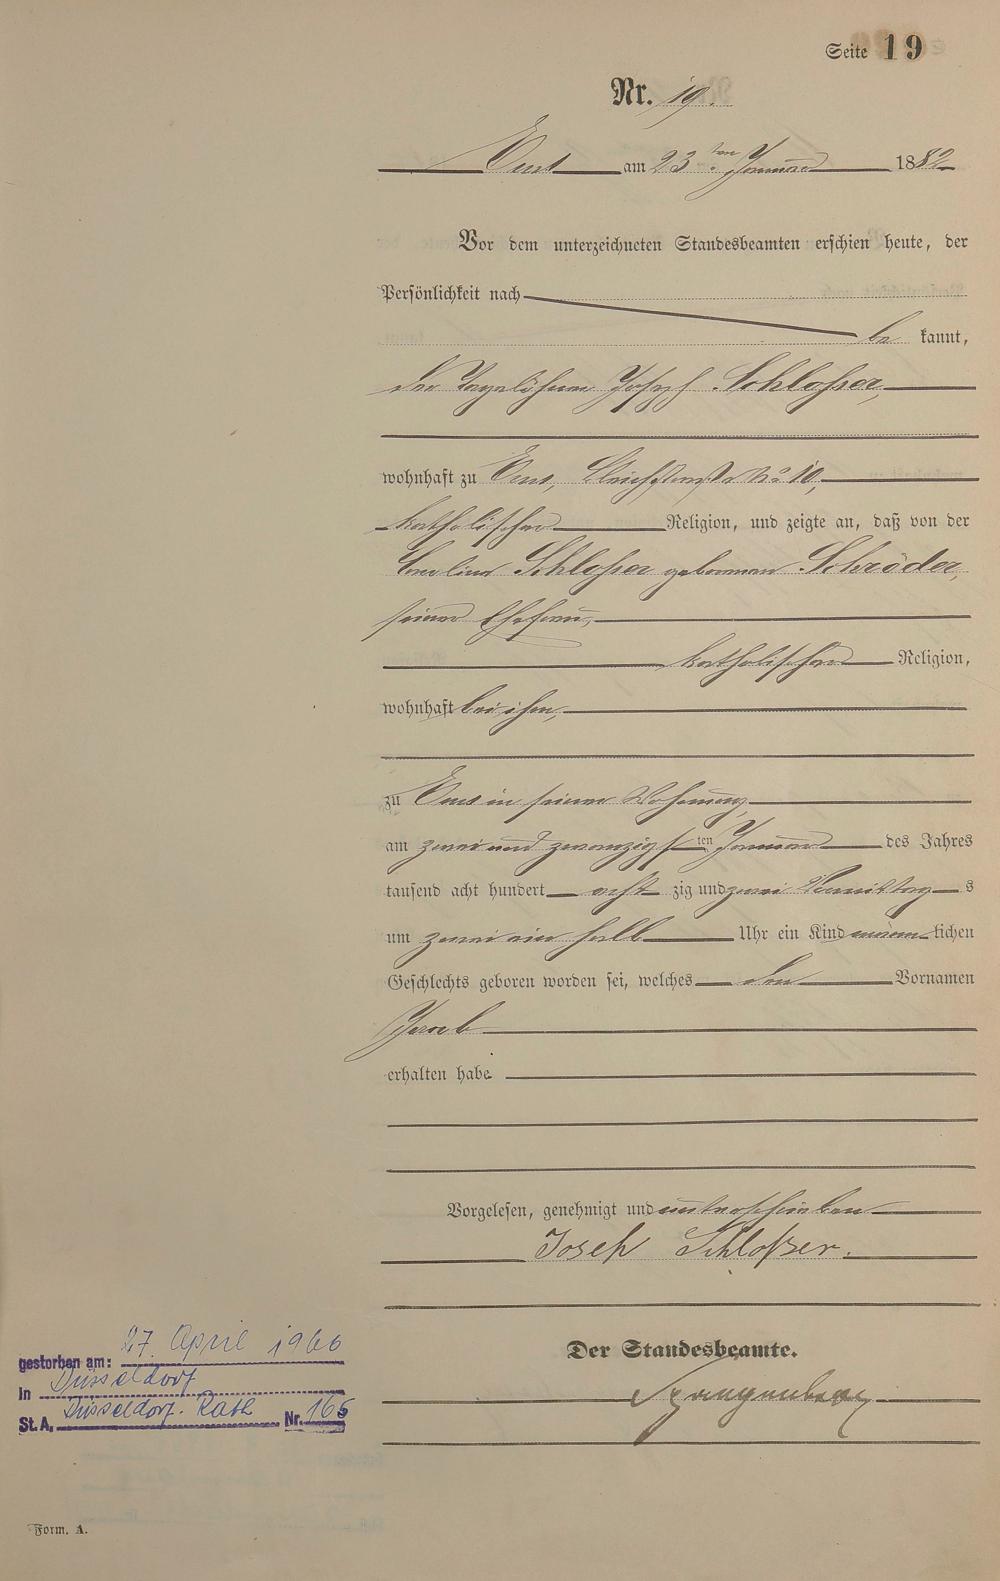 Seite 19
Nr. 19.
Ems am 23ten Januar 1882
Vor dem unterzeichneten Standesbeamten erschien heute, der
Persönlichkeit nach
be kannt,
der Tagelöhner Joseph Schloßer,
wohnhaft zu Ems, Bleichstraße No 10,
katholischer Religion, und zeigte an, daß von der
Carolina Schloßer geborenen Schröder,
seiner Ehefrau,
katholischer Religion,
wohnhaft bei ihm,
zu Ems in seiner Wohnung,
am zwei und zwanzigsten Januar des Jahres
tausend acht hundert acht zig und zwei Vormittag s
um zwei ein halb Uhr ein Kind männ lichen
Geschlechts geboren worden sei, welches den Vornamen
Jacob
erhalten habe
Vorgelesen, genehmigt und unterschrieben
Joseh Schloßer.
Der Standesbeamte.
gestorben am: 27. April 1966
in Düsseldorf
St. A. Düsseldorf-Rath Nr. 165
Form. A.